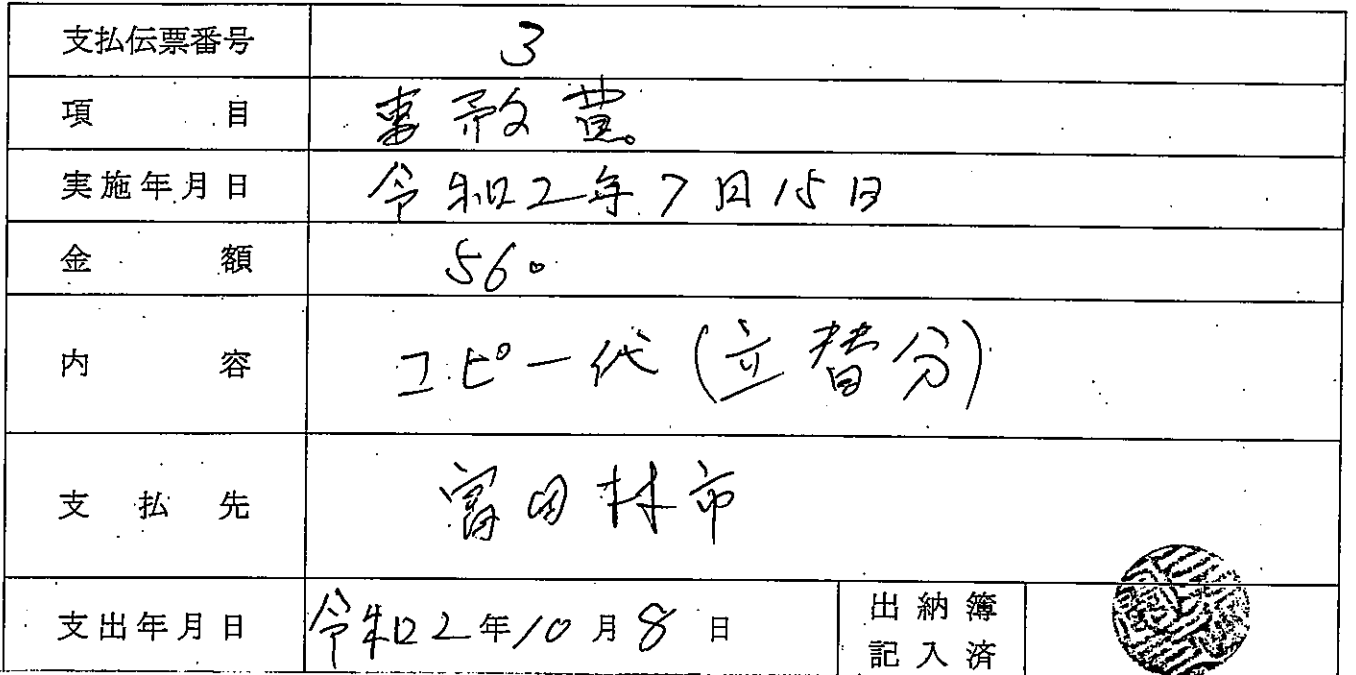 支払伝票番号 3
項目 事務費
実施年月日 令和2年7月15日
金額 560
内容 コピー代(立替分)
支払先 富田林市
支出年月日 令和2年10月8日 出納簿
記入済